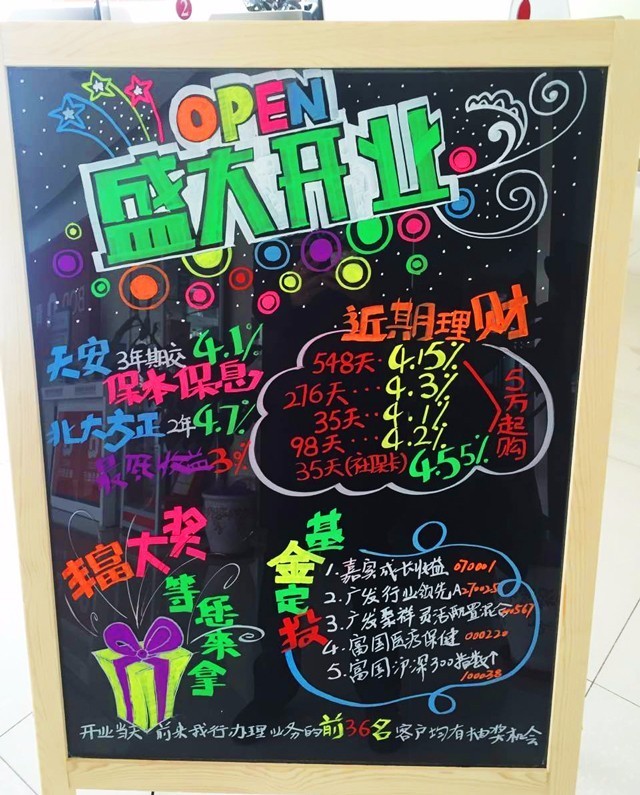 2
OPEN
盛大开业
天安 3年期交 4.1%
保本保息
北大方正 2年 4.7%
最低收益3%
近期理财
548天·4.15%
276天···4.3%
35天···4.1%
98天···4.2%
35天(社保卡)4.55%
5万起购
丰富大奖
等乐来拿
基金定投
1.嘉实成长收益 070001
2.广发行业领先A 270025
3.广发聚祥灵活配置混合
4.富国医疗保健 000220
5.富国沪深300指数↑
100038
开业当天 前来我行办理业务的前36名 客户均有抽奖机会